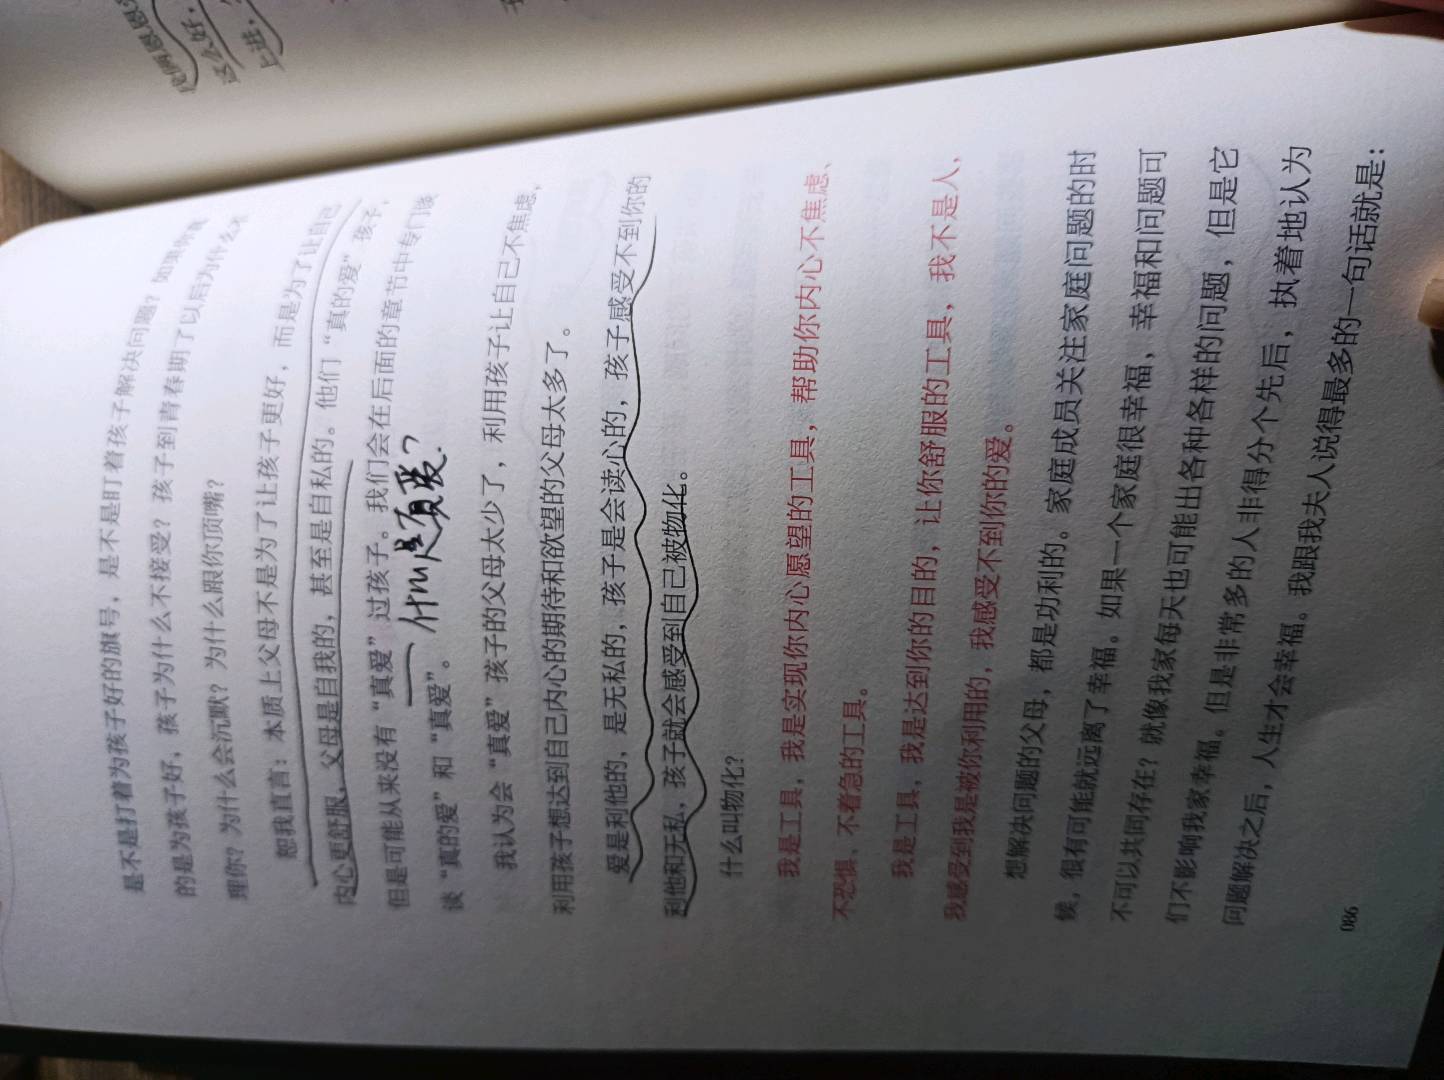 这么好，
上进，
是不是打着为孩子好的旗号，是不是盯着孩子解决问题？如果你真
的是为孩子好，孩子为什么不接受？孩子到青春期了以后为什么不
理你？为什么会沉默？为什么跟你顶嘴？
恕我直言：本质上父母不是为了让孩子更好，而是为了让自己
内心更舒服，父母是自我的，甚至是自私的。他们“真的爱”孩子，
但是可能从来没有“真爱”过孩子。我们会在后面的章节中专门谈
谈“真的爱”和“真爱”。
——什么是真爱？
我认为会“真爱”孩子的父母太少了，利用孩子让自己不焦虑，
利用孩子想达到自己内心的期待和欲望的父母太多了。
爱是利他的，是无私的，孩子是会读心的，孩子感受不到你的
利他和无私，孩子就会感受到自己被物化。
什么叫物化？
我是工具，我是实现你内心愿望的工具，帮助你内心不焦虑、
不恐惧、不着急的工具。
我是工具，我是达到你的目的，让你舒服的工具，我不是人，
我感受到我是被你利用的，我感受不到你的爱。
想解决问题的父母，都是功利的。家庭成员关注家庭问题的时
候，很有可能就远离了幸福。如果一个家庭很幸福，幸福和问题可
不可以共同存在？就像我家每天也可能出各种各样的问题，但是它
们不影响我家幸福。但是非常多的人非得分个先后，执着地认为
问题解决之后，人生才会幸福。我跟我夫人说得最多的一句话就是：
086